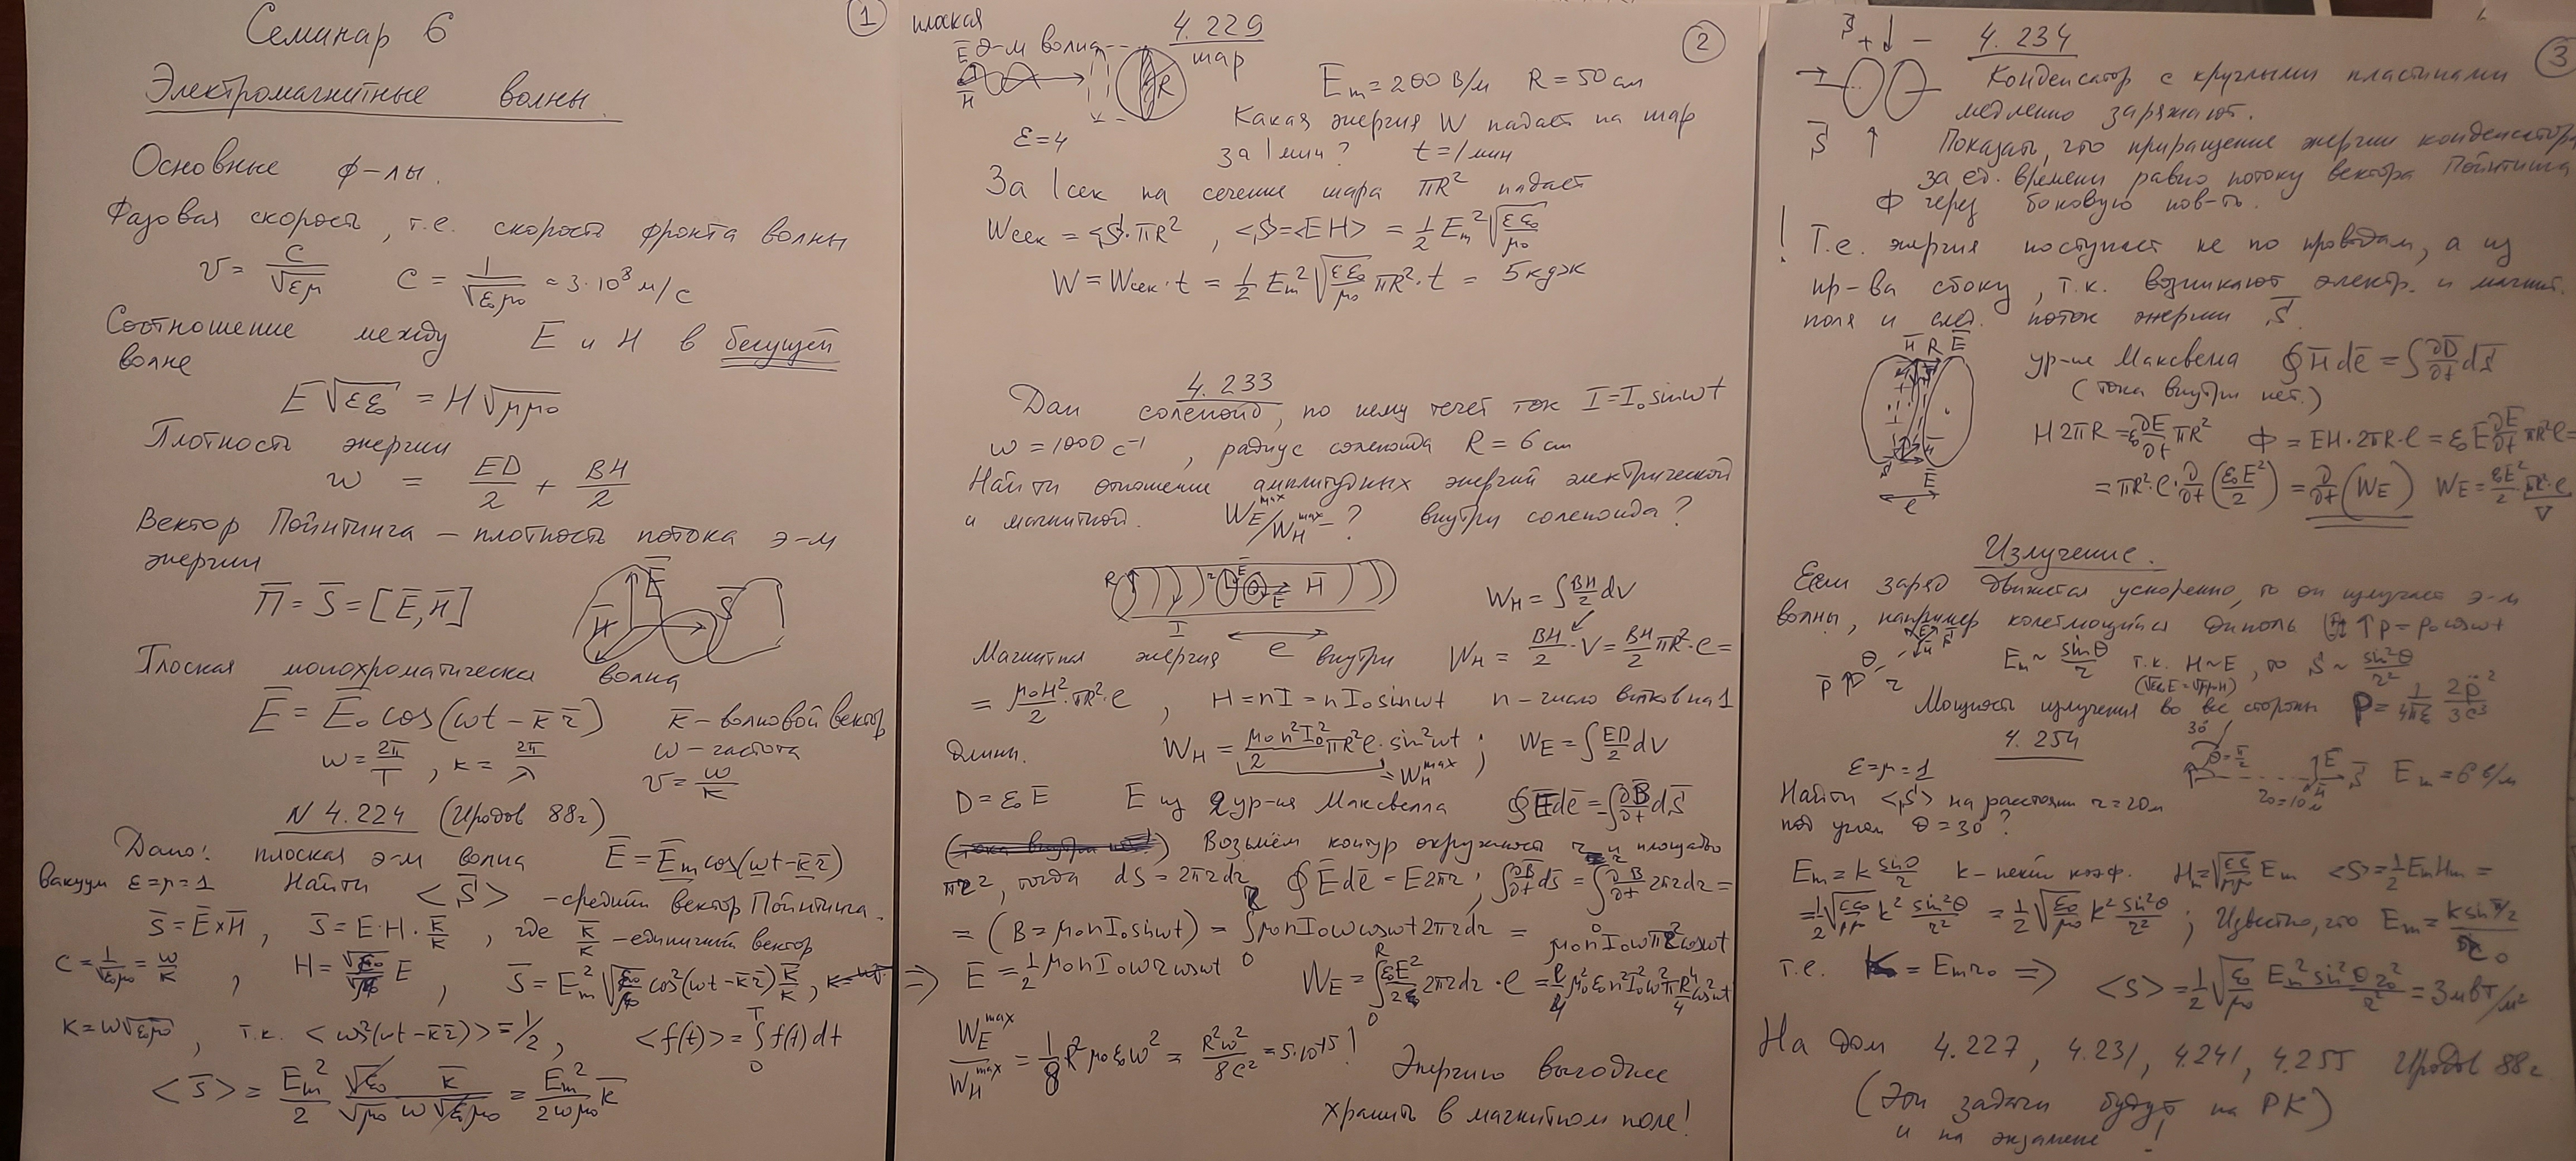 Семинар 6
Электромагнитные волны
①
Основные ф-лы.
Фазовая скорость, т.е. скорость фронта волны
v = c/√εμ   c = 1/√ε₀μ₀ = 3·10⁸ м/с
Соотношение между E и H в бегущей
волне
E√εε₀ = H√μμ₀
Плотность энергии w = ED/2 + BH/2
Вектор Пойнтинга – плотность потока э-м
энергии
П̄ = S̄ = [Ē,H̄]
Плоская монохроматическая волна
Ē = Ē₀ cos(ωt - k̄r̄)   k̄ - волновой вектор
ω = 2π/T, k = 2π/λ   ω - частота
v = ω/k
N 4.224 (Иродов 88г)
Дано: плоская э-м волна Ē = Ēm cos(ωt - k̄r̄)
вакуум ε=μ=1 Найти <S̄> - средний вектор Пойнтинга.
S̄ = Ē×H̄, S̄ = E·H·k̄/k, где k̄/k - единичный вектор
c = 1/√ε₀μ₀ = ω/k, H = √ε₀/μ₀ E, S̄ = Em² √ε₀/μ₀ cos²(ωt - k̄r̄) k̄/k,
k = ω√ε₀μ₀, т.к. <cos²(ωt - k̄r̄)> = 1/2, <f(t)> = ∫₀ᵀ f(t)dt
<S̄> = Em²/2 √ε₀/√μ₀ k̄/ω√ε₀μ₀ = Em²/2ωμ₀ k̄
②
4.229
плоская
э-м волна
Ē
H̄
R
шар
Em = 200 В/м R = 50 см
ε = 4
Какая энергия W падает на шар
за 1 мин? t = 1 мин
За 1 сек на сечение шара πR² падает
Wсек = <S>·πR², <S> = <EH> = 1/2 Em² √εε₀/μ₀
W = Wсек·t = 1/2 Em² √εε₀/μ₀ πR²·t = 5 кдж
4.233
Дан соленоид, по нему течет ток I = I₀ sinωt
ω = 1000 c⁻¹, радиус соленоида R = 6 см
Найти отношение амплитудных энергий электрической
и магнитной. WE max/WH max - ? внутри соленоида?
WH = ∫BH/2 dV
Магнитная энергия внутри WH = BH/2·V = BH/2 πR²·ℓ =
= μ₀H²/2·πR²·ℓ, H = nI = nI₀ sinωt   n - число витков на 1
длины. WH = μ₀n²I₀²/2 πR²ℓ·sin²ωt; WE = ∫ED/2 dV
WH max
D = ε₀Ē   E из Я ур-я Максвелла ∮Ēdℓ̄ = ∫∂B̄/∂t dS̄
Возьмём контур окружность r и площадь
πr², тогда dS = 2πrdr ∮Ēdℓ̄ = E2πr; ∫∂B̄/∂t dS̄ = ∫∂B/∂t 2πrdr =
= (B = μ₀nI₀ sinωt) = ∫μ₀nI₀ω cosωt 2πrdr = μ₀nI₀ωπr² cosωt
⇒ E = 1/2 μ₀nI₀ωr cosωt   WE = ∫₀ᴿ ε₀E²/2 2πrdr·ℓ
WE max/WH max = 1/8 R²μ₀ε₀ω² = R²ω²/8c² = 5·10⁻¹⁵!   Энергию выгоднее
хранить в магнитном поле!
③
4.234
Конденсатор с круглыми пластинами
медленно заряжают.
Показать, что приращение энергии конденсатора
за ед. времени равно потоку вектора Пойнтинга
Ф через боковую пов-ть.
! Т.е. энергия поступает не по проводам, а из
пр-ва сбоку, т.к. возникают электр. и магнит.
поля и след. поток энергии S̄
ур-е Максвелла ∮H̄dℓ̄ = ∫∂D̄/∂t dS̄
(тока внутри нет.)
H2πR = ε₀ ∂E/∂t πR²   Ф = EH·2πR·ℓ = ε₀E ∂E/∂t πR²ℓ =
= πR²·ℓ·∂/∂t(ε₀E²/2) = ∂/∂t(WE)   WE = ε₀E²/2 πR²·ℓ
V
Излучение.
Если заряд движется ускоренно, то он излучает э-м
волны, например колеблющийся диполь p = p₀cosωt
Em ~ sinθ/r   т.к. H~E, то S ~ sin²θ/r²
Мощность излучения во все стороны P = 1/4πε₀ 2p̈²/3c³
4.254
ε=μ=1
Em = 6 В/м
Найти <S> на расстоянии r = 20 м
под углом θ = 30°?
Em = k sinθ/r   k - некий коэф.   <S> = 1/2 EmHm =
= 1/2 √ε₀/μ₀ k² sin²θ/r²; Известно, что Em = k sinπ/2 / r₀
т.е. k = Em r₀ ⇒ <S> = 1/2 √ε₀/μ₀ Em² sin²θ r₀²/r² = 3 мВт/м²
На дом 4.227, 4.231, 4.241, 4.255 Иродов 88г
(Эти задачи будут на РК)
и на экзамене